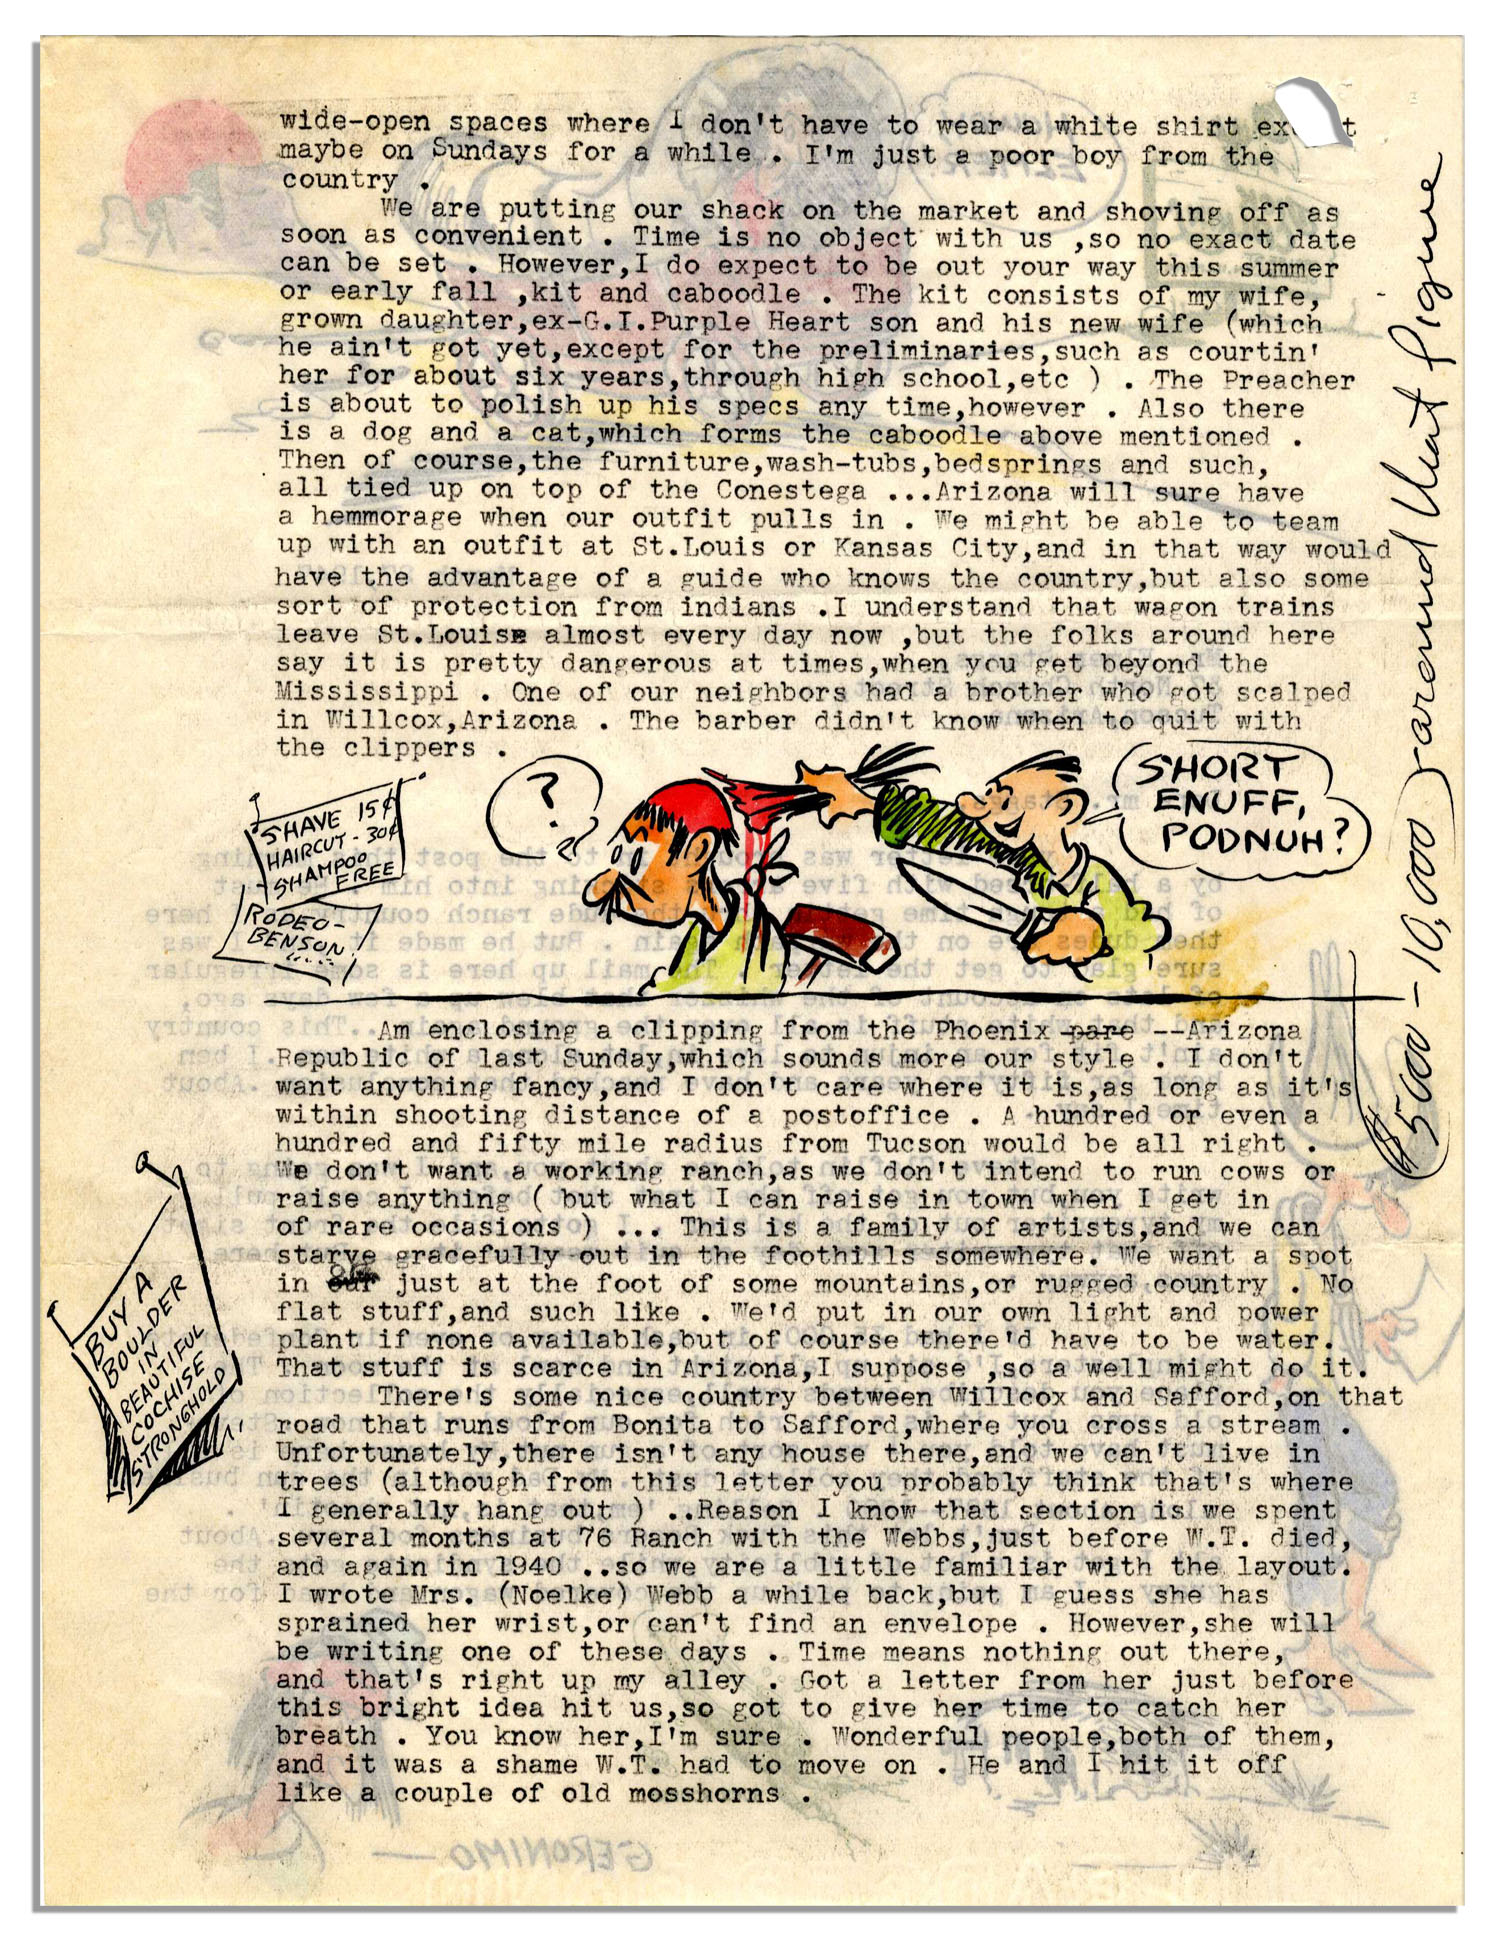 wide-open spaces where I don't have to wear a white shirt
maybe on Sundays for a while . I'm just a poor boy from the
country .
We are putting our shack on the market and shoving off as
soon as convenient . Time is no object with us ,so no exact date
can be set . However,I do expect to be out your way this summer
or early fall ,kit and caboodle . The kit consists of my wife,
grown daughter,ex-G.I.Purple Heart son and his new wife (which
he ain't got yet,except for the preliminaries,such as courtin'
her for about six years,through high school,etc ) . The Preacher
is about to polish up his specs any time,however . Also there
is a dog and a cat,which forms the caboodle above mentioned .
Then of course,the furniture,wash-tubs,bedsprings and such,
all tied up on top of the Conestega ...Arizona will sure have
a hemmorage when our outfit pulls in . We might be able to team
up with an outfit at St.Louis or Kansas City,and in that way would
have the advantage of a guide who knows the country,but also some
sort of protection from indians .I understand that wagon trains
leave St.Louis almost every day now ,but the folks around here
say it is pretty dangerous at times,when you get beyond the
Mississippi . One of our neighbors had a brother who got scalped
in Willcox,Arizona . The barber didn't know when to quit with
the clippers .
SHAVE 15¢
HAIRCUT - 30¢
SHAMPOO
FREE
RODEO-
BENSON!
?
SHORT
ENUFF,
PODNUH?
Am enclosing a clipping from the Phoenix pare --Arizona
Republic of last Sunday,which sounds more our style . I don't
want anything fancy,and I don't care where it is,as long as it's
within shooting distance of a postoffice . A hundred or even a
hundred and fifty mile radius from Tucson would be all right .
We don't want a working ranch,as we don't intend to run cows or
raise anything ( but what I can raise in town when I get in
of rare occasions ) ... This is a family of artists,and we can
starve gracefully out in the foothills somewhere. We want a spot
in our or just at the foot of some mountains,or rugged country . No
flat stuff,and such like . We'd put in our own light and power
plant if none available,but of course there'd have to be water.
That stuff is scarce in Arizona,I suppose ,so a well might do it.
There's some nice country between Willcox and Safford,on that
road that runs from Bonita to Safford,where you cross a stream .
Unfortunately,there isn't any house there,and we can't live in
trees (although from this letter you probably think that's where
I generally hang out ) ..Reason I know that section is we spent
several months at 76 Ranch with the Webbs,just before W.T. died,
and again in 1940 ..so we are a little familiar with the layout.
I wrote Mrs. (Noelke) Webb a while back,but I guess she has
sprained her wrist,or can't find an envelope . However,she will
be writing one of these days . Time means nothing out there,
and that's right up my alley . Got a letter from her just before
this bright idea hit us,so got to give her time to catch her
breath . You know her,I'm sure . Wonderful people,both of them,
and it was a shame W.T. had to move on . He and I hit it off
like a couple of old mosshorns .
BUY A
BOULDER
IN
BEAUTIFUL
COCHISE
STRONGHOLD
$500 - 10,000 around that figure
GERONIMO —